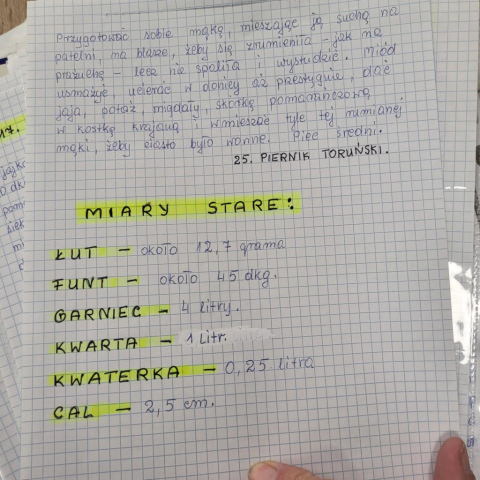 Przygotować sobie mąkę, mieszając ją suchą na
patelni, na blasze, żeby się zrumieniła - jak na
prażuchę - lecz nie spaliła i wystudzić. Miód
usmażyć, ucierać w donicy aż przestygnie, dać
jaja, potaż, migdały, skórkę pomarańczową
w kostkę krajaną i wmieszać tyle tej rumianej
mąki, żeby ciasto było wolne. Piec średni.
25. PIERNIK TORUŃSKI.
17.
MIARY STARE:
ŁUT - około 12,7 grama
FUNT - około 45 dkg.
GARNIEC - 4 litry.
KWARTA - 1 litr.
KWATERKA - 0,25 litra
CAL - 2,5 cm.